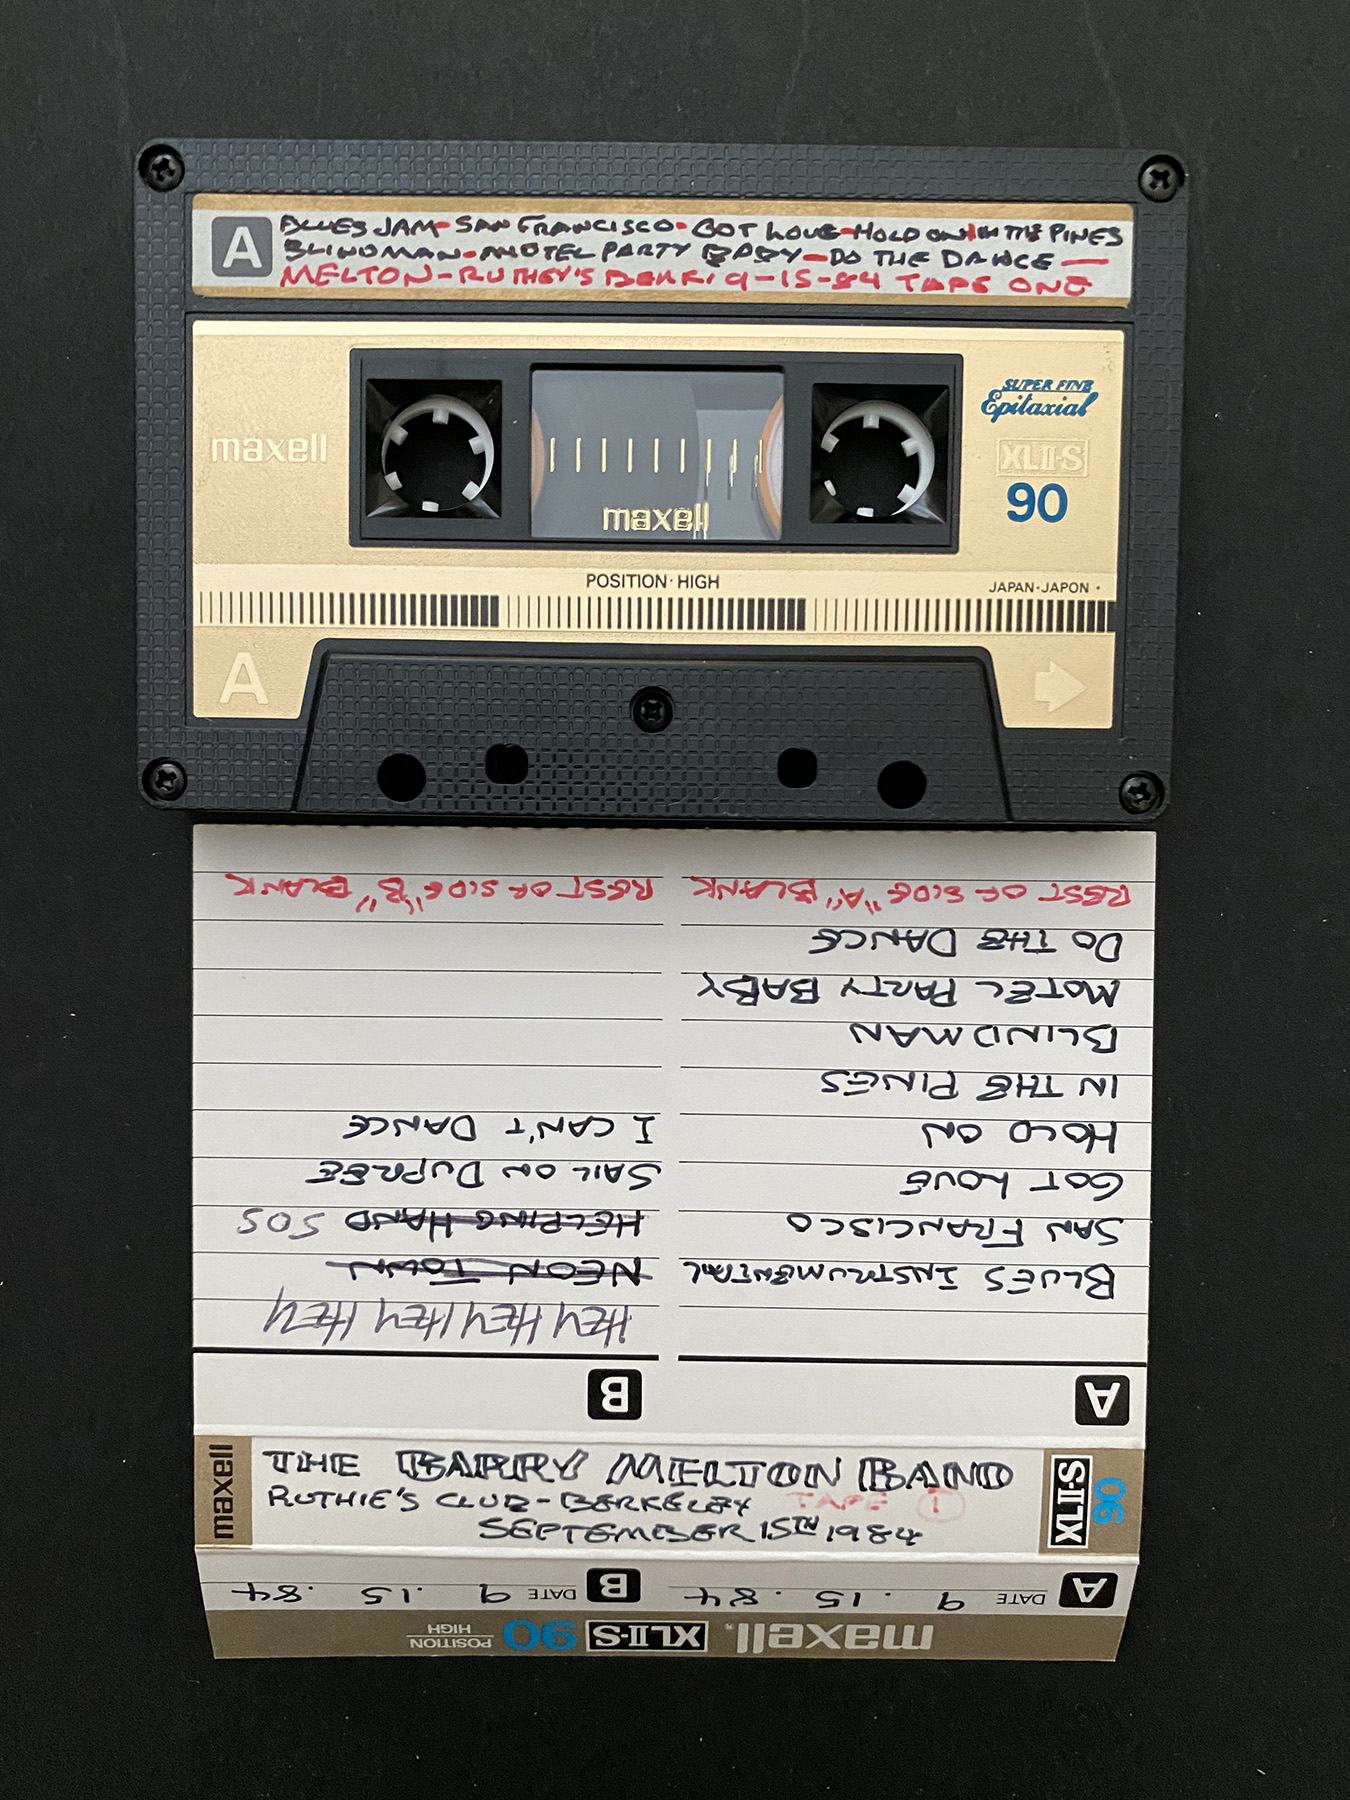 A
BLUES JAM - SAN FRANCISCO - GOT LOVE - HOLD ON IN THE PINES
BLINDMAN - MOTEL PARTY BABY - DO THE DANCE —
MELTON - RUTHEY'S BERK 9-15-84 TAPE ONE
maxell
maxell
SUPER FINE
Epitaxial
XLII-S
90
POSITION · HIGH
JAPAN-JAPON ·
A
A
BLUES INSTRUMENTAL
SAN FRANCISCO
GOT LOVE
HOLD ON
IN THE PINES
BLINDMAN
MOTEL PARTY BABY
DO THE DANCE
REST OF SIDE "A" BLANK
B
HEY HEY HEY HEY
NEON TOWN
HELPING HAND SOS
SAIL ON DUPREE
I CAN'T DANCE
REST OF SIDE "B" BLANK
maxell
THE BARRY MELTON BAND
RUTHIE'S CLUB - BERKELEY TAPE 1
SEPTEMBER 15TH 1984
XLII-S
90
A DATE 9 . 15 . 84 B DATE 9 . 15 . 84
maxell® XLII-S 90 POSITION HIGH